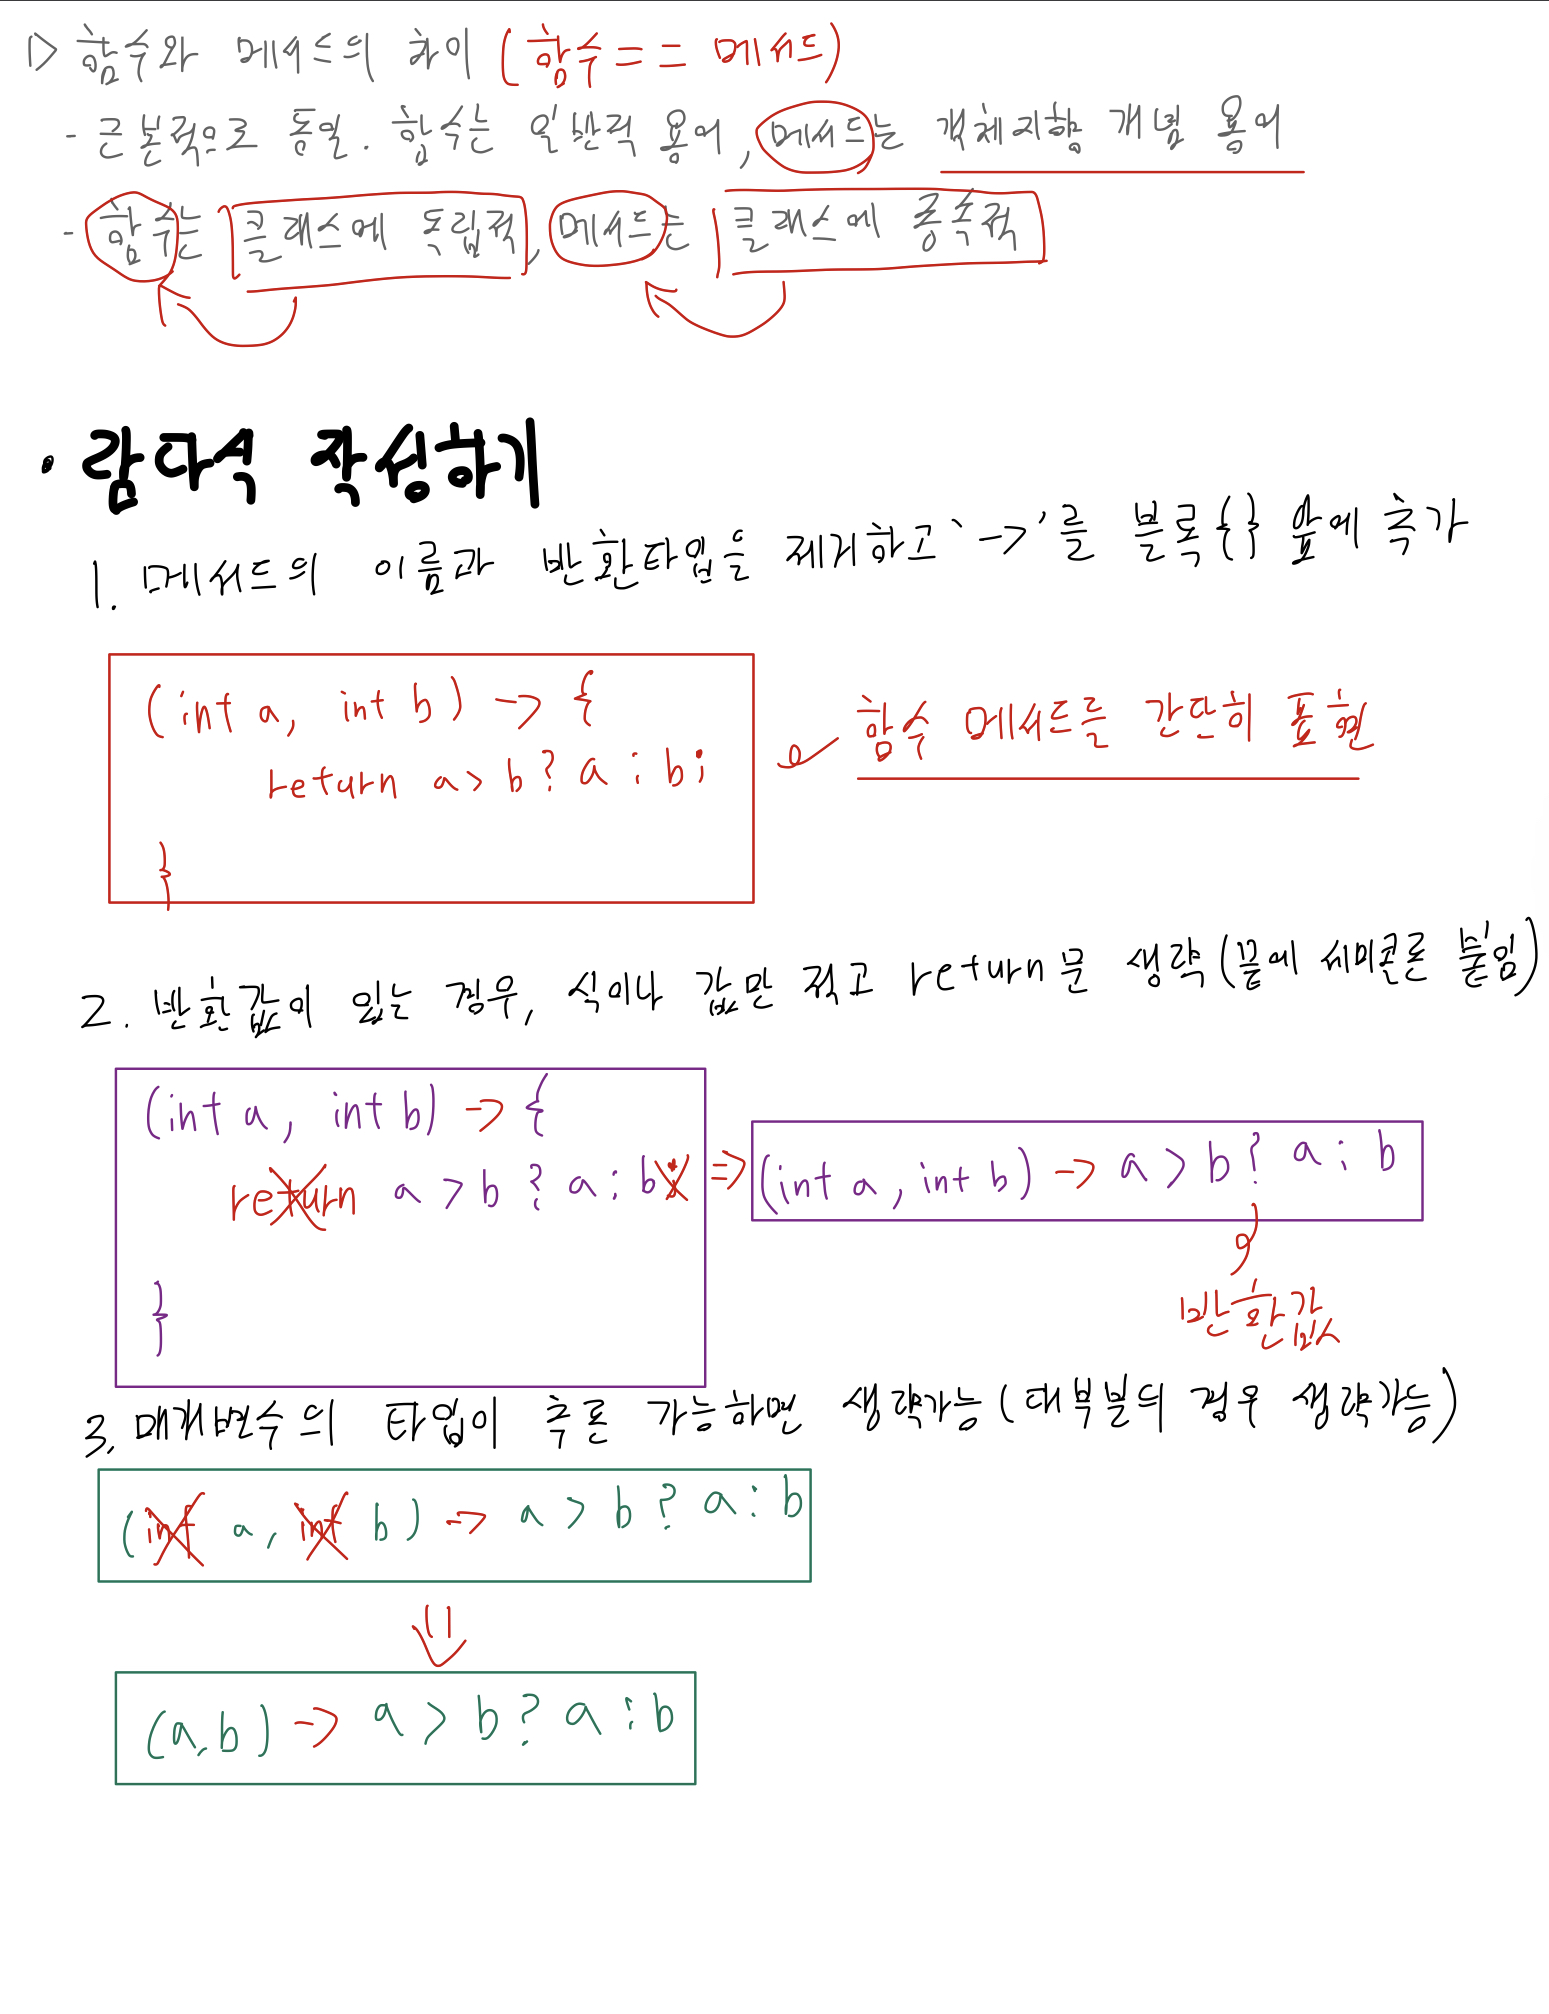 ▷ 함수와 메서드의 차이 (함수 == 메서드)
- 근본적으로 동일. 함수는 일반적 용어, 메서드는 객체지향 개념 용어
- 함수는 클래스에 독립적, 메서드는 클래스에 종속적
• 람다식 작성하기
1. 메서드의 이름과 반환타입을 제거하고 '->'를 블록{} 앞에 추가
(int a, int b) -> {
return a > b ? a : b;
}
함수 메서드를 간단히 표현
2. 반환값이 있는 경우, 식이나 값만 적고 return문 생략 (끝에 세미콜론 붙임)
(int a, int b) -> {
return a > b ? a : b;
}
=> (int a, int b) -> a > b ? a : b
반환값
3. 매개변수의 타입이 추론 가능하면 생략가능 (대부분의 경우 생략가능)
(int a, int b) -> a > b ? a : b
(a, b) -> a > b ? a : b